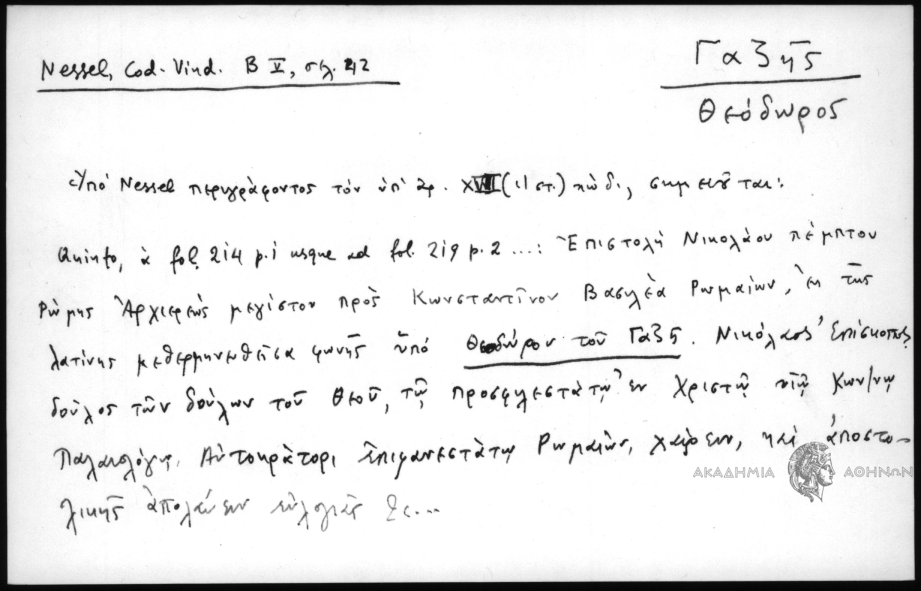 Nessel, Cod. Vind. B V, σελ. 42
Γαζῆς
Θεόδωρος
Ὑπό Nessel περιγράφοντος τόν ὑπ' ἀρ. XVII (ἱστ.) κώδ., σημειοῦται:
Quinto, à fol. 214 p. 1 usque ad fol. 219 p. 2 ...: Ἐπιστολή Νικολάου πέμπτου
Ρώμης Ἀρχιερέως μεγίστου πρὸς Κωνσταντῖνον Βασιλέα Ρωμαίων, ἐκ τῆς
λατίνης μεθερμηνευθεῖσα φωνῆς ὑπό Θεοδώρου τοῦ Γαζῆ. Νικόλαος Ἐπίσκοπος
δοῦλος τῶν δούλων τοῦ Θεοῦ, τῷ προσφιλεστάτῳ ἐν Χριστῷ υἱῷ Κων/νῳ
Παλαιολόγῳ, Αὐτοκράτορι ἐπιφανεστάτῳ Ρωμαίων, χαίρειν, καί ἀποστο-
λικῆς ἀπολαύειν εὐλογίας &c...
ΑΚΑΔΗΜΙΑ ΑΘΗΝΩΝ